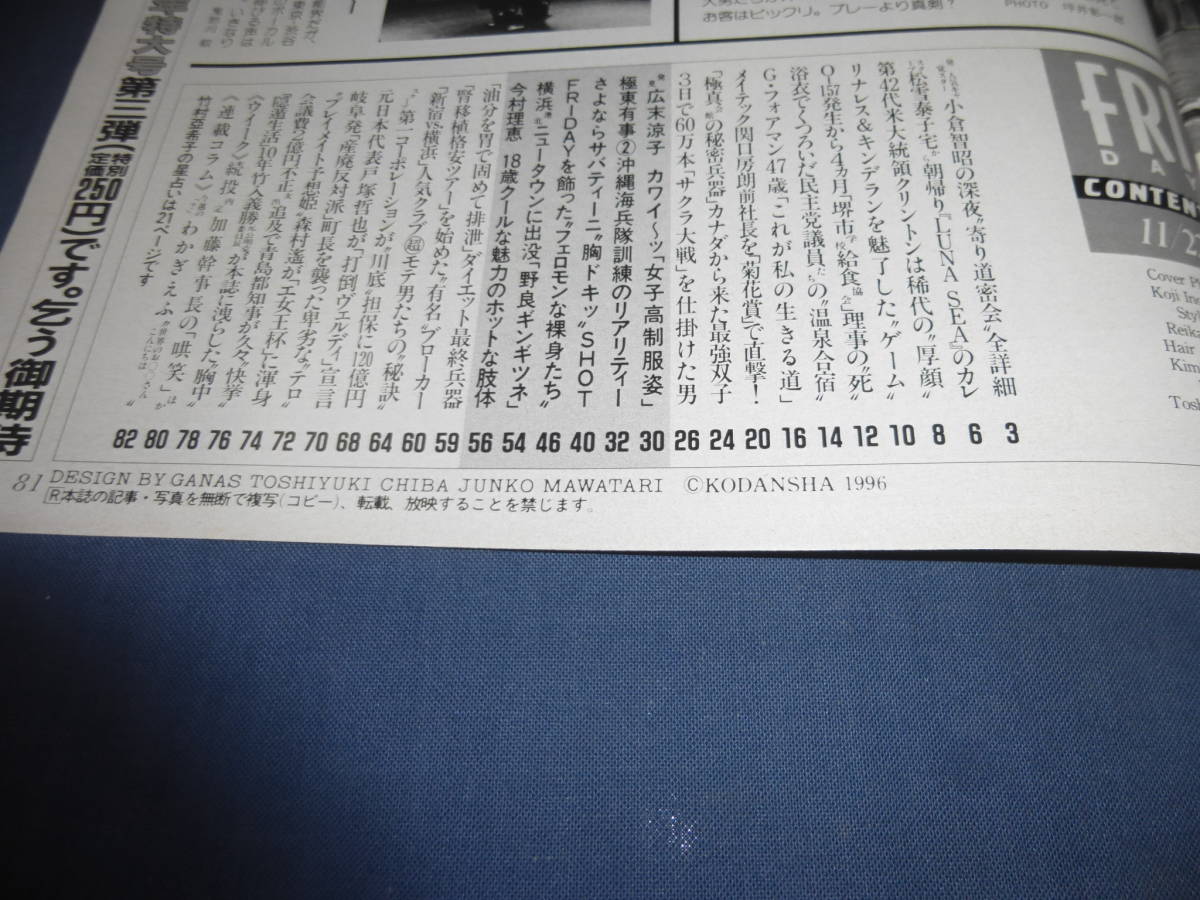 FRI
DAY
CONTEN
11/2
Cover P
Koji In
Sty
Reik
Hair
Kim
Tosh
お客はビックリ。プレーより真剣?
PHOTO 坪井
小倉智昭の深夜“寄り道密会”全詳細 3
松雪泰子宅から朝帰り『LUNA SEA』のカレ 6
第42代米大統領クリントンは稀代の“厚顔” 8
リナレス&キンデランを魅了した“ゲーム” 10
O-157発生から4カ月「堺市学校給食協会」理事の“死” 12
浴衣でくつろいだ民主党議員たちの“温泉合宿” 14
G・フォアマン47歳「これが私の生きる道」 16
メイテック関口房朗前社長を「菊花賞」で直撃! 20
「極真会館の秘密兵器」カナダから来た最強双子 24
3日で60万本「サクラ大戦」を仕掛けた男 26
発見 広末涼子 カワイ〜ッ「女子高制服姿」 30
極東有事②沖縄海兵隊訓練のリアリティー 32
さよならサバティーニ“胸ドキッ”SHOT 40
FRIDAYを飾った“フェロモンな裸身たち” 46
横浜港北ニュータウンに出没「野良ギンギツネ」 54
今村理恵 18歳クールな魅力のホットな肢体 56
「油分を胃で固めて排泄」ダイエット最終兵器 59
「腎移植格安ツアー」を始めた“有名”ブローカー 60
「新宿&横浜」人気クラブ超モテ男たちの“秘訣” 64
第一コーポレーションが“川底”担保に120億円 68
元日本代表戸塚哲也が「打倒ヴェルディ」宣言 70
岐阜発「産廃反対派」町長を襲った卑劣な“テロ” 72
“プレイメイト予想姫”森村遥が「エ女王杯」に渾身 74
会議費7億円不正を追及で青島都知事が久々“快挙” 76
「隠遁生活」10年竹入義勝が本誌に洩らした“胸中” 78
〈ウイークを続投〉加藤幹事長の「哄笑」 80
〈連載コラム〉わかぎえふ 82
竹村亜希子の星占いは21ページです
特大号第二弾(特別定価250円)です。乞う御期待
81 DESIGN BY GANAS TOSHIYUKI CHIBA JUNKO MAWATARI ©KODANSHA 1996
R本誌の記事・写真を無断で複写(コピー)、転載、放映することを禁じます。